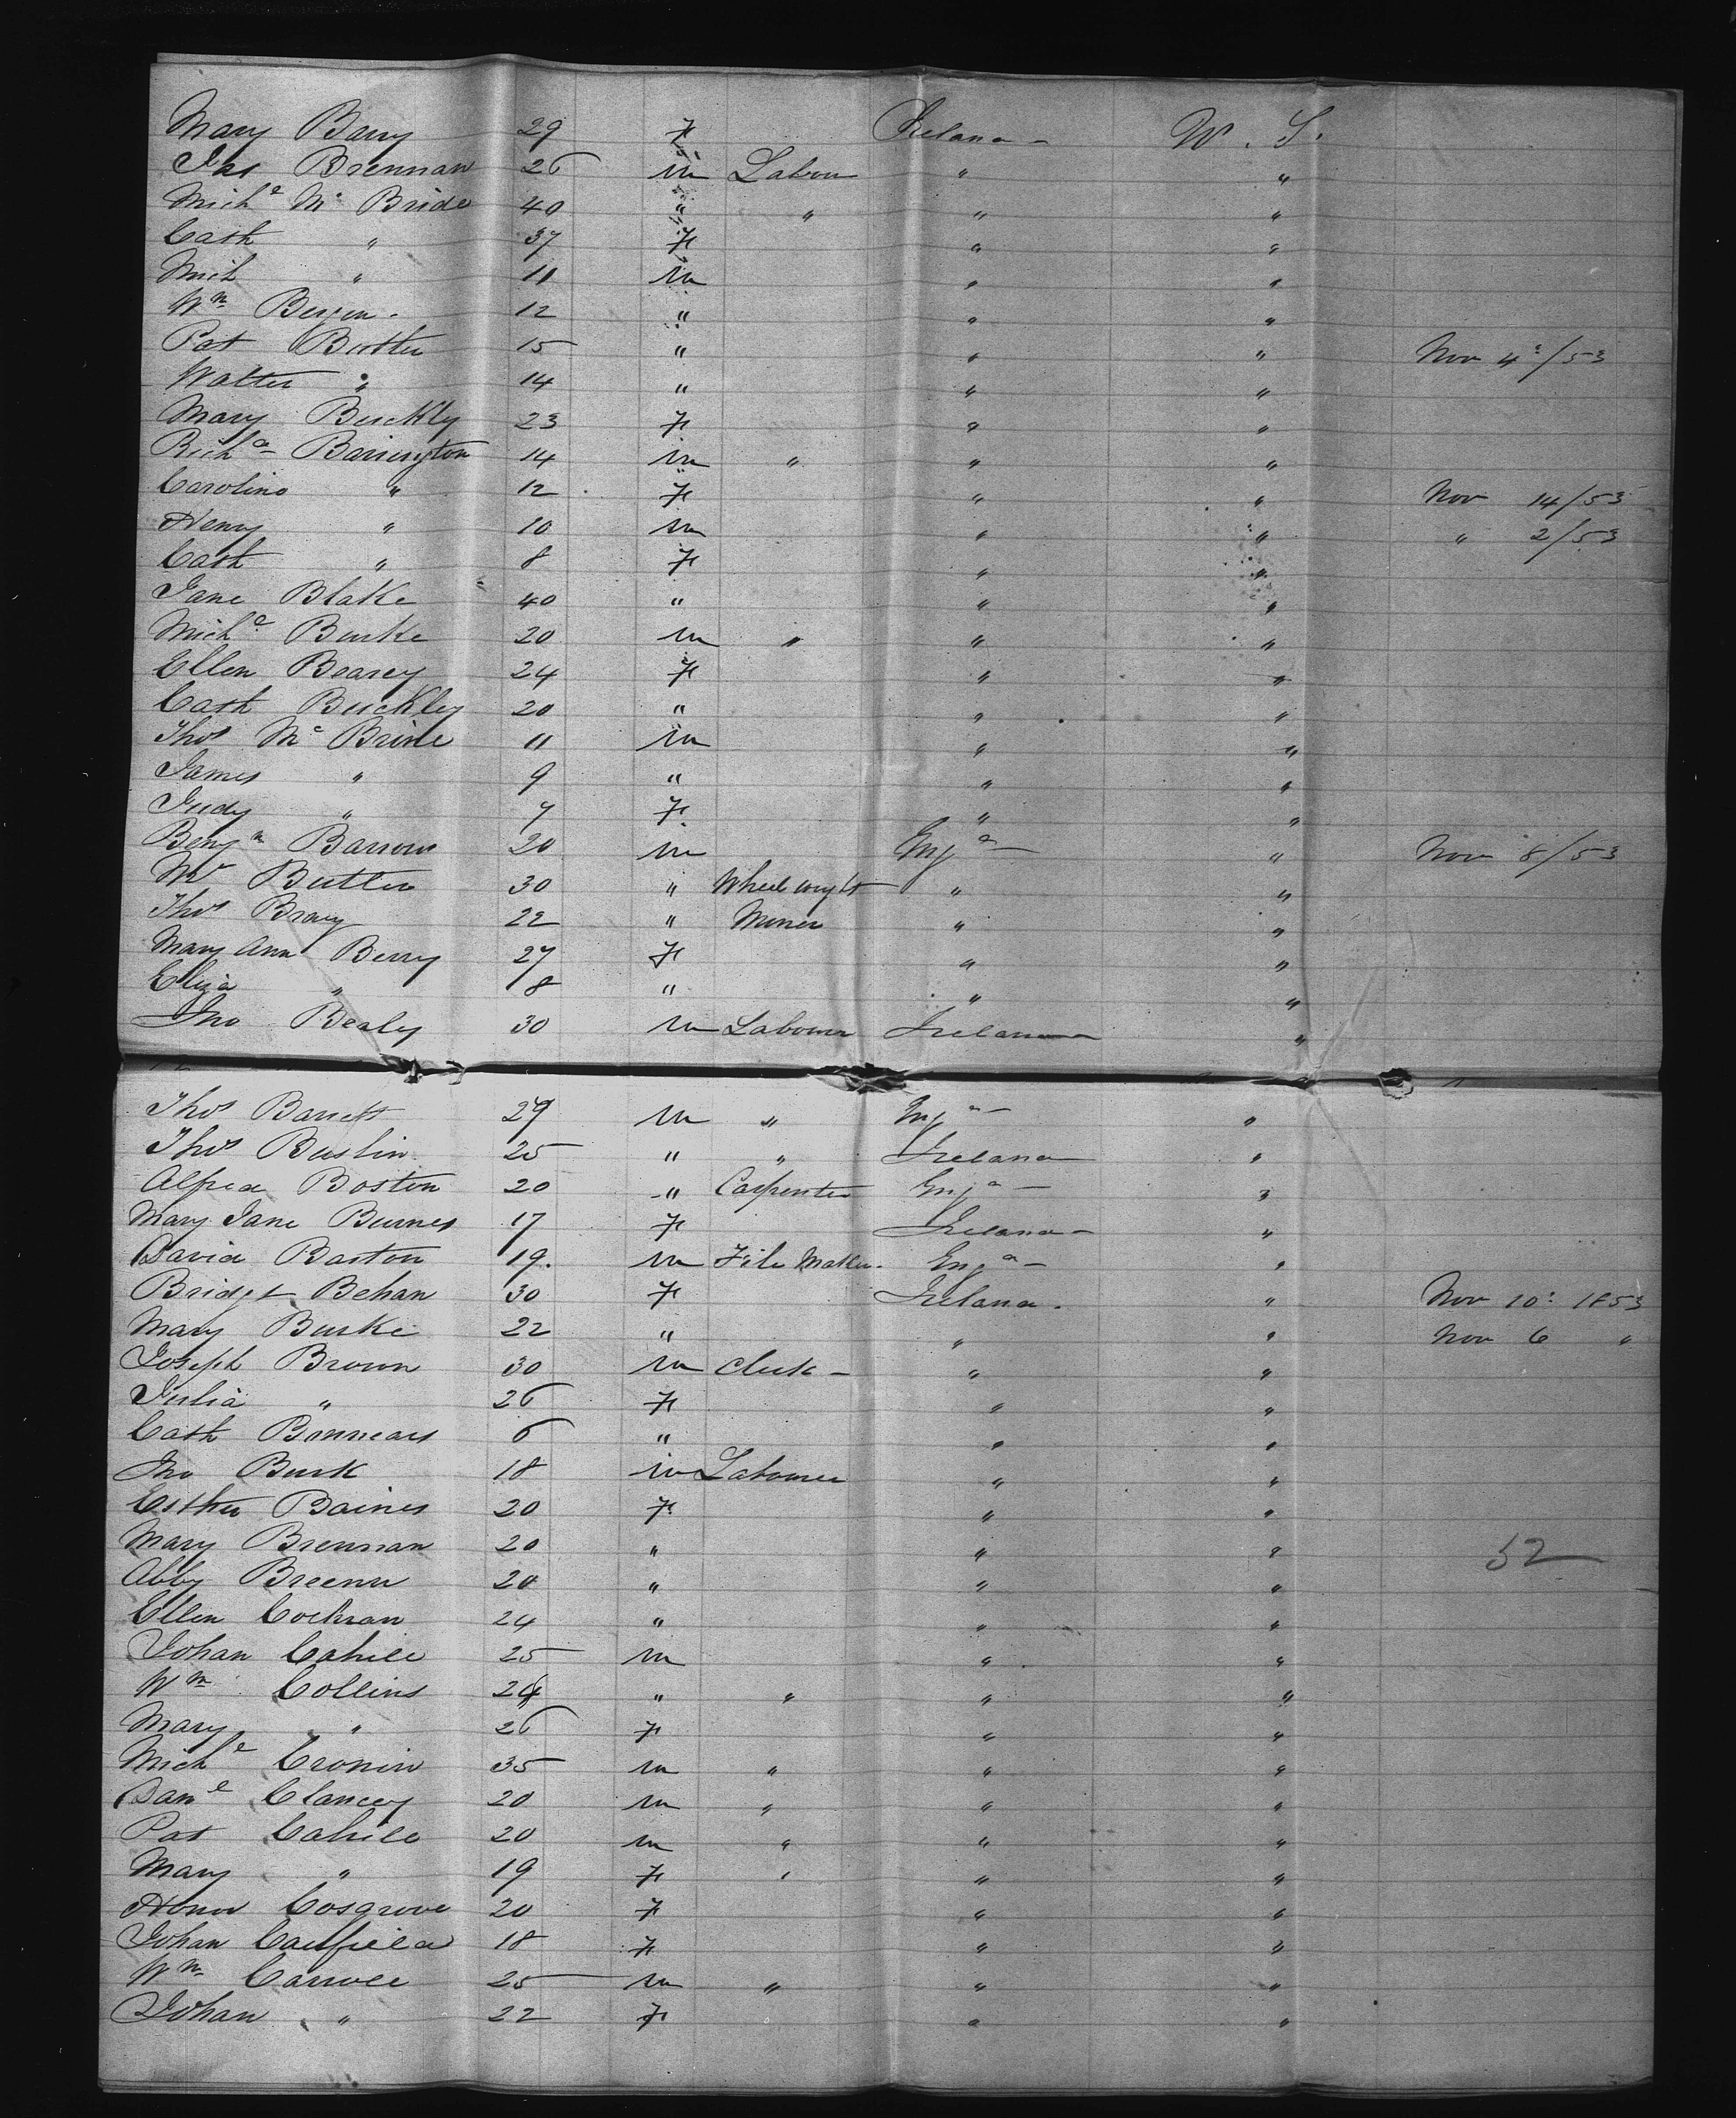 Mary Barry 29 F Ireland W. S.
Jas Brennan 26 m Labour " "
Mich.l Mc Bride 40 " " " "
Cath " 37 F " "
Mich " 11 m " "
Wm Bergen 12 " " "
Pat Butler 15 " " " Nov 4: /53
Walter " 14 " " "
Mary Buckly 23 F " "
Richd Barrington 14 m " " "
Caroline " 12 F " " Nov 14/53
Henry " 10 m " " " 2/53
Cath " 8 F " "
Jane Blake 40 " " "
Mich.l Burke 20 m " " "
Ellen Bearey 24 F " "
Cath Buckley 20 " " "
Thos Mc Brine 11 m " "
James " 9 " " "
Judy " 7 F " "
Benjn Barrows 20 m Engd " Nov 8/53
Butler 30 " Wheelwright " "
Thos Bravy 22 " Miner " "
Mary Ann Berry 27 F " "
Eliza " 8 " " "
Jno Bealey 30 m Labourer Ireland "
Thos Barrett 29 m " Engd "
Thos Buslin 25 " " Ireland "
Alfred Boston 20 " Carpenter Engd "
Mary Jane Burnes 17 F Ireland "
David Barton 19. m File Maker Engd "
Bridget Behan 30 F Ireland. " Nov 10: 1853
Mary Burke 22 " " " Nov 6 "
Joseph Brown 30 m Clerk " "
Julia " 26 F " "
Cath 6 " " "
Jno Burk 18 m Labourer " "
Esther Baines 20 F " "
Mary Brennan 20 " " " 52
Abby Breenn 20 " " "
Ellen Cochran 24 " " "
Johan Cahill 25 m " "
Wm Collins 24 " " " "
Mary " 26 F " "
Mich.l Cronin 35 m " " "
Danl Clancey 20 m " " "
Pat Cahill 20 m " " "
Mary " 19 F " " "
Honor Cosgrove 20 F " "
Johan Caulfield 18 F " "
Wm Carroll 25 m " " "
Johan " 22 F " "